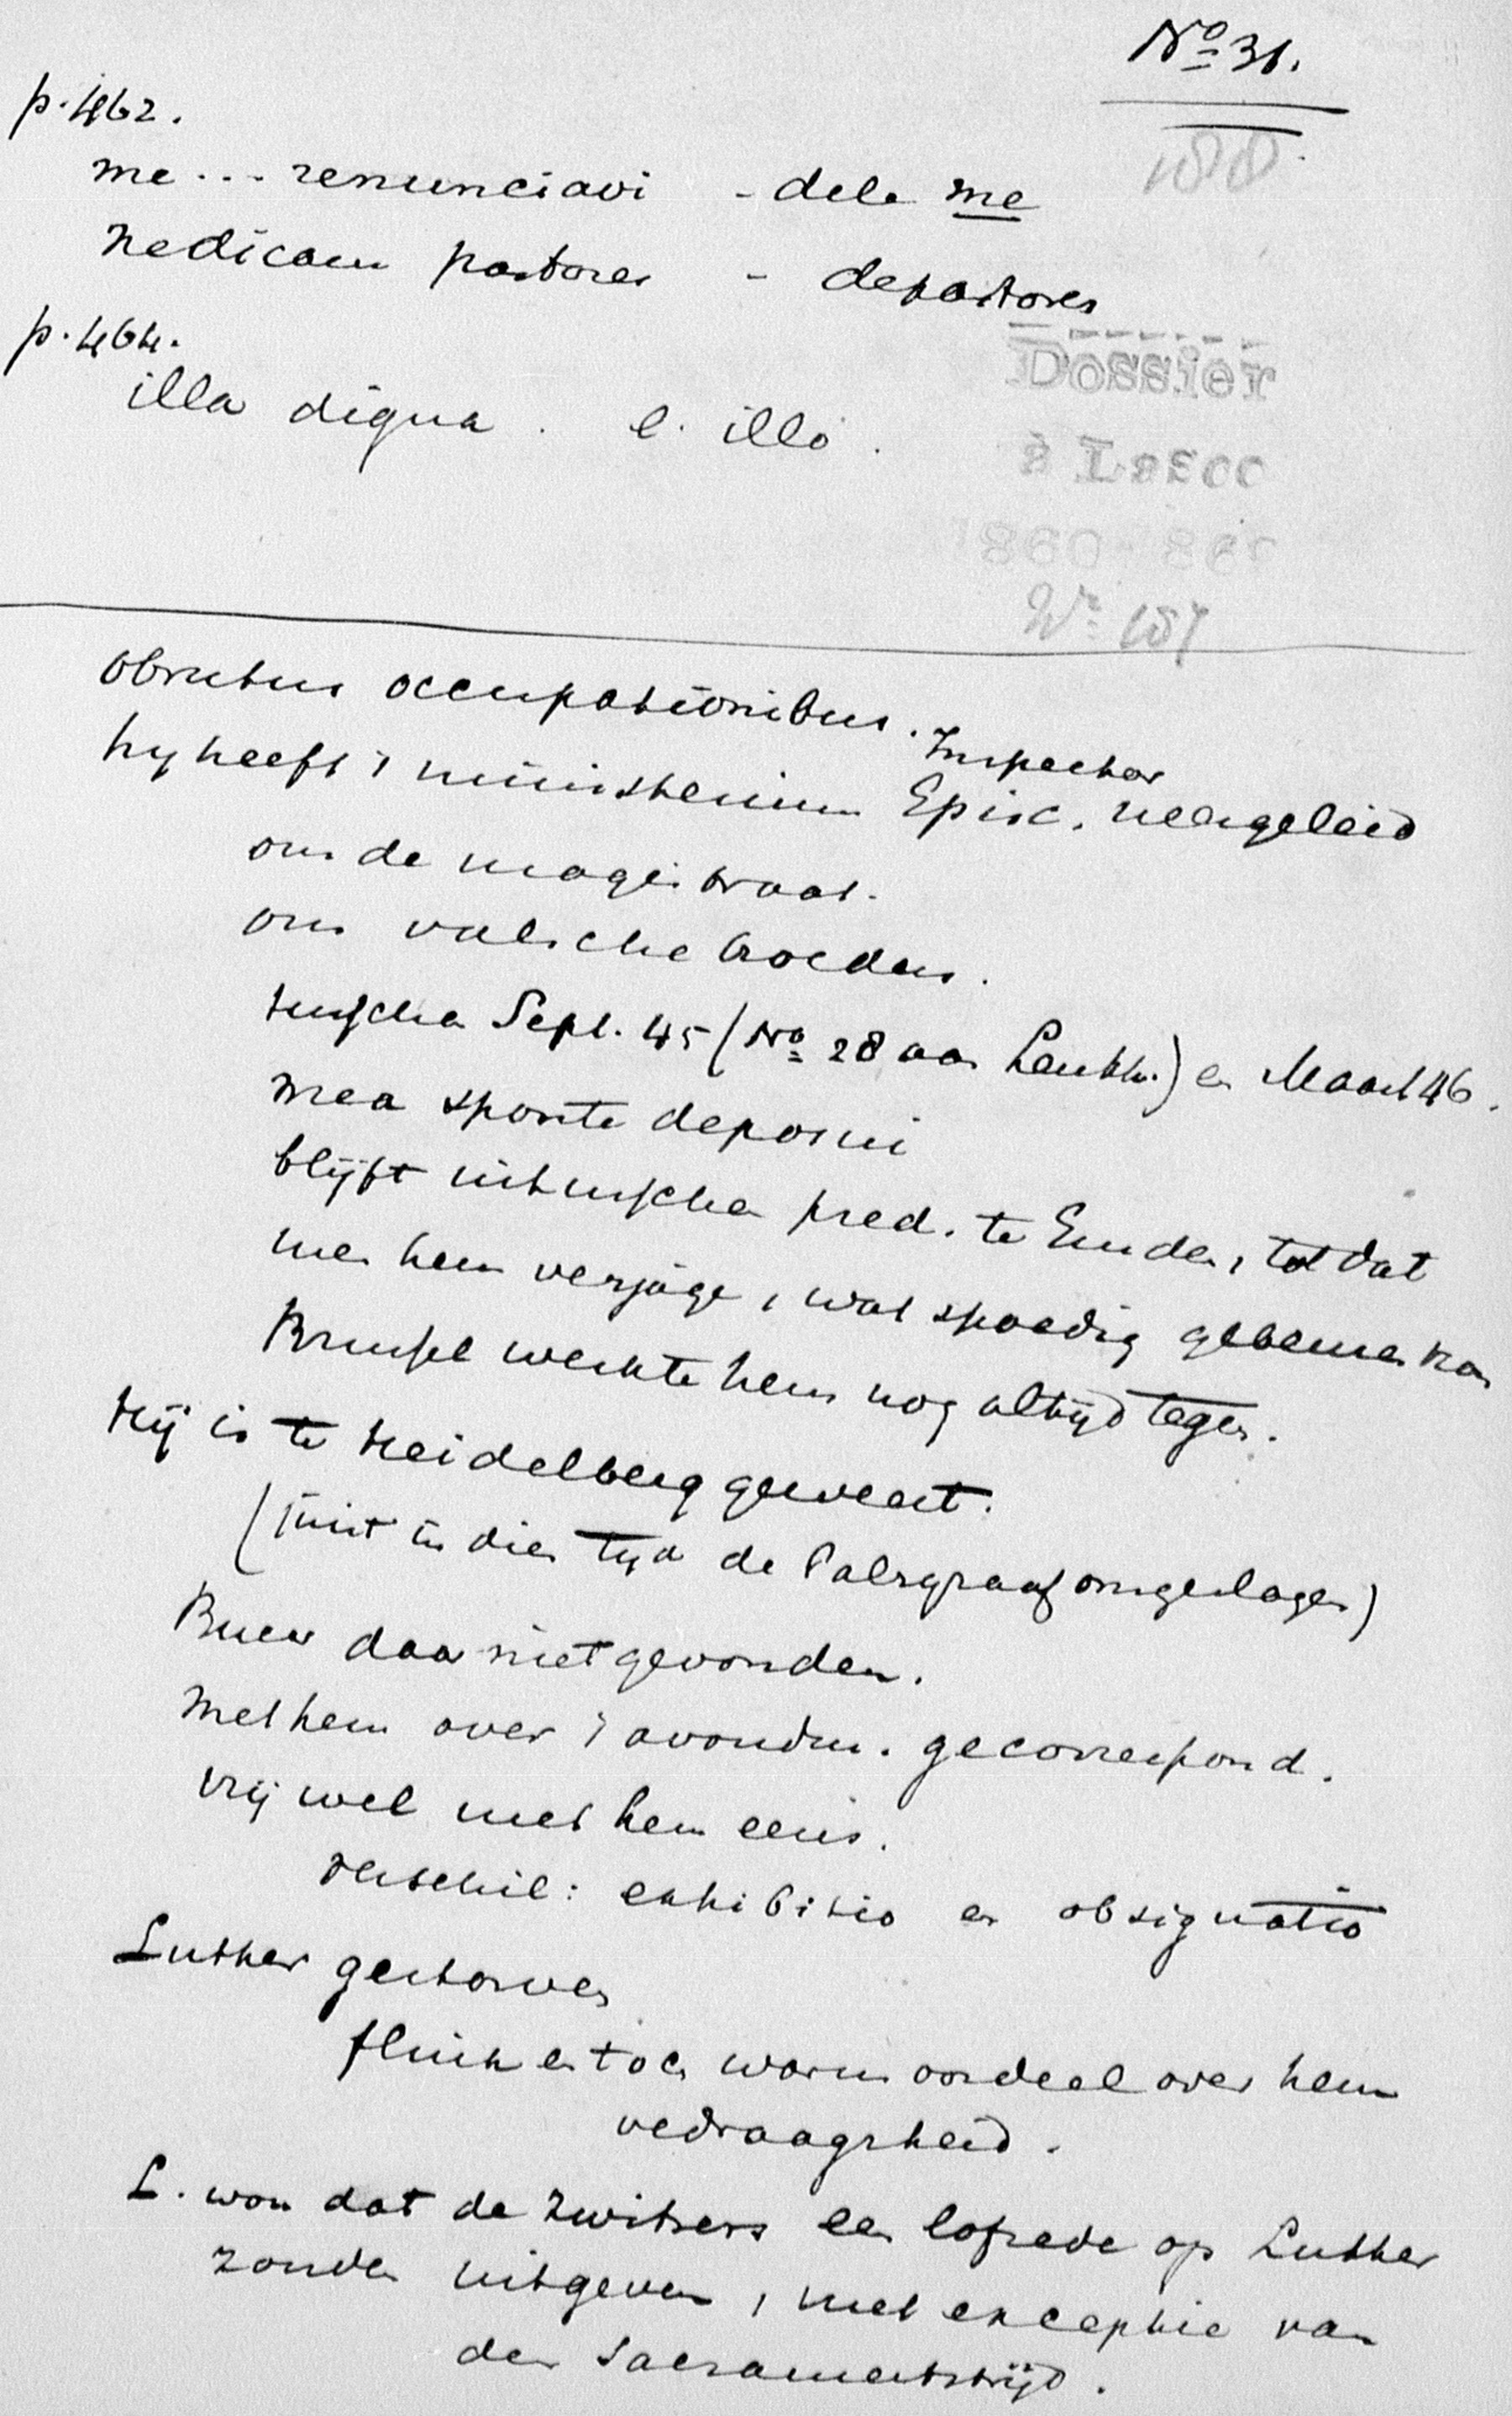 No 31.
188
p. 462.
me ... renunciavi - dele me
nedicam pastores - depastores
p. 464.
illa digna. l. illo.
Dossier
à Lasco
1860-86
No 187
obrutus occupationibus.
Inspector
hy heeft 't ministerium Episc. neergeleid
om de magistraat.
om valsche broeders.
tusschen Sept. 45 (No 28 aan Lenth.) en Maart 46.
mea sponte deposui
blijft intusschen pred. te Emden, totdat
men hem verjage, wat spoedig gebeuren kan
Brussel werkte hem nog altijd tegen.
Hij is te Heidelberg geweest.
(juist in dien tijd de Palzgraaf omgeslagen)
Bucer daar niet gevonden.
Met hem over 't avondm. gecorrespond.
vrij wel met hem eens.
verschil: exhibitio en obsignatio
Luther gestorven
flink en toch warm oordeel over hem
verdraagzheid.
L. wou dat de Zwitsers een lofrede op Luther
zouden uitgeven, met exceptie van
den Sacramentstrijd.